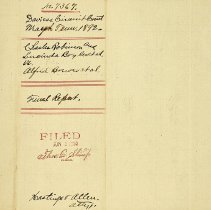 No. 7367.
Daviess Circuit Court
March Term 1892.
Charles Robinson and
Lucinda
vs.
Alfred et al
Final Report.
FILED
JUN
Hastings & Allen
Attys.